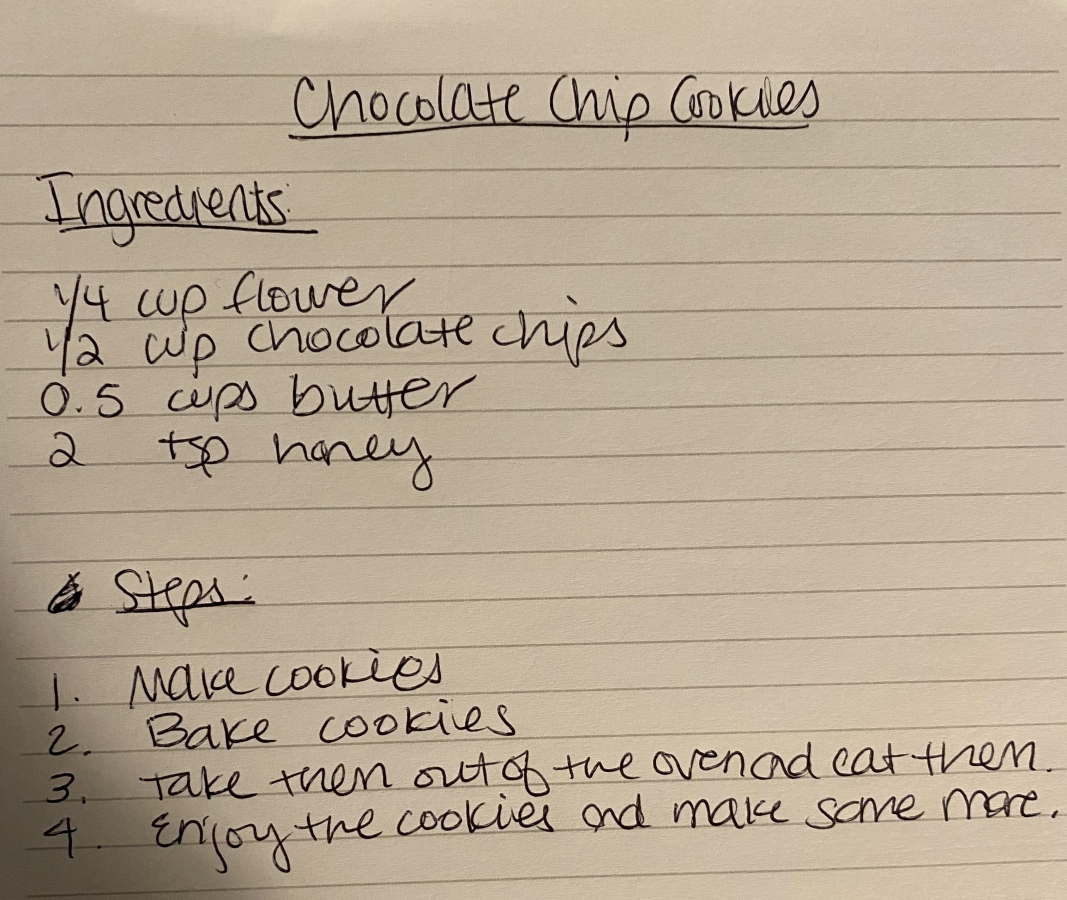 Chocolate Chip Cookies
Ingredients:
1/4 cup flower
1/2 cup chocolate chips
0.5 cups butter
2 tsp honey
Steps:
1. Make cookies
2. Bake cookies
3. Take them out of the oven and eat them.
4. Enjoy the cookies and make some more.